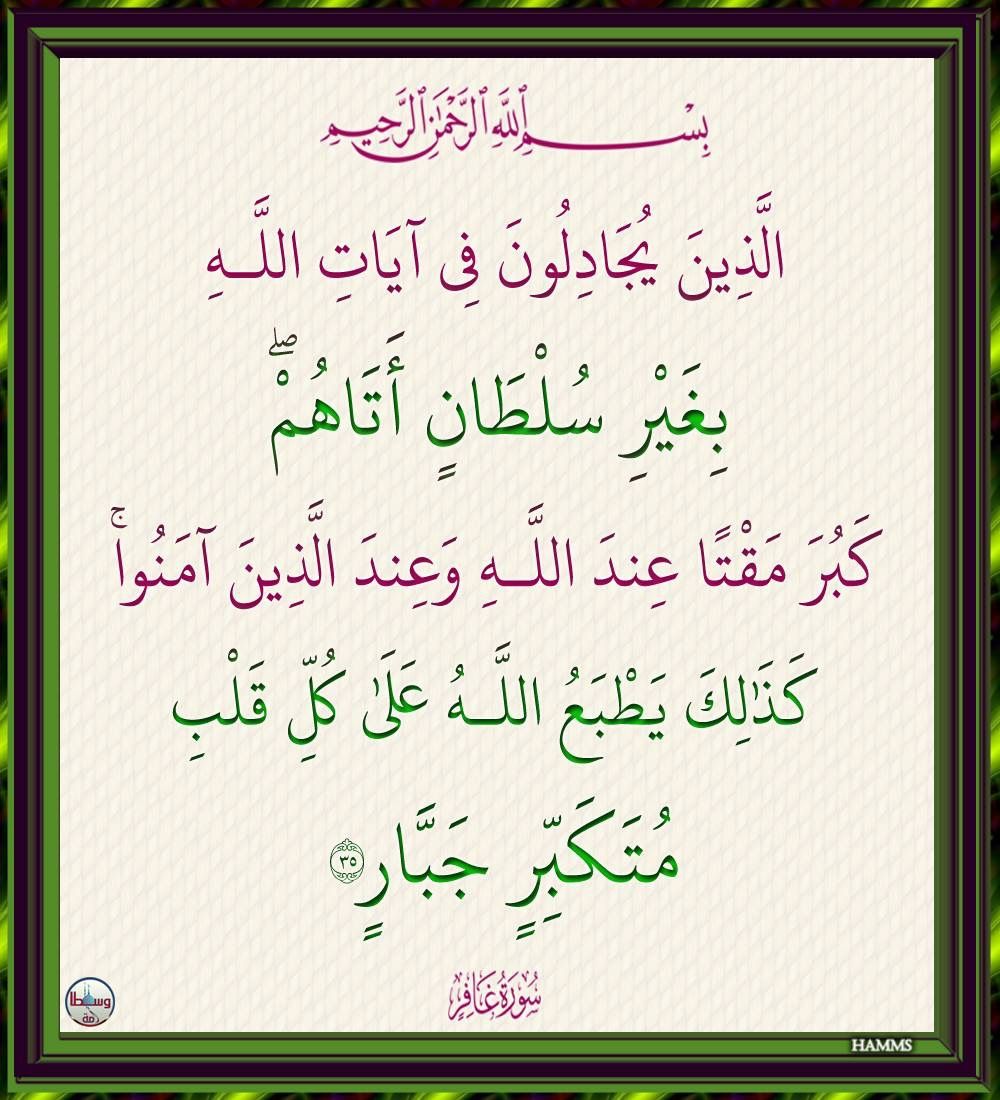 بِسْمِ ٱللَّهِ ٱلرَّحْمَٰنِ ٱلرَّحِيمِ
الَّذِينَ يُجَادِلُونَ فِي آيَاتِ اللَّـهِ
بِغَيْرِ سُلْطَانٍ أَتَاهُمْ ۖ
كَبُرَ مَقْتًا عِندَ اللَّـهِ وَعِندَ الَّذِينَ آمَنُوا ۚ
كَذَٰلِكَ يَطْبَعُ اللَّـهُ عَلَىٰ كُلِّ قَلْبِ
مُتَكَبِّرٍ جَبَّارٍ ﴿٣٥﴾
سُورَةُ غَافِرٍ
وسطا
HAMMS